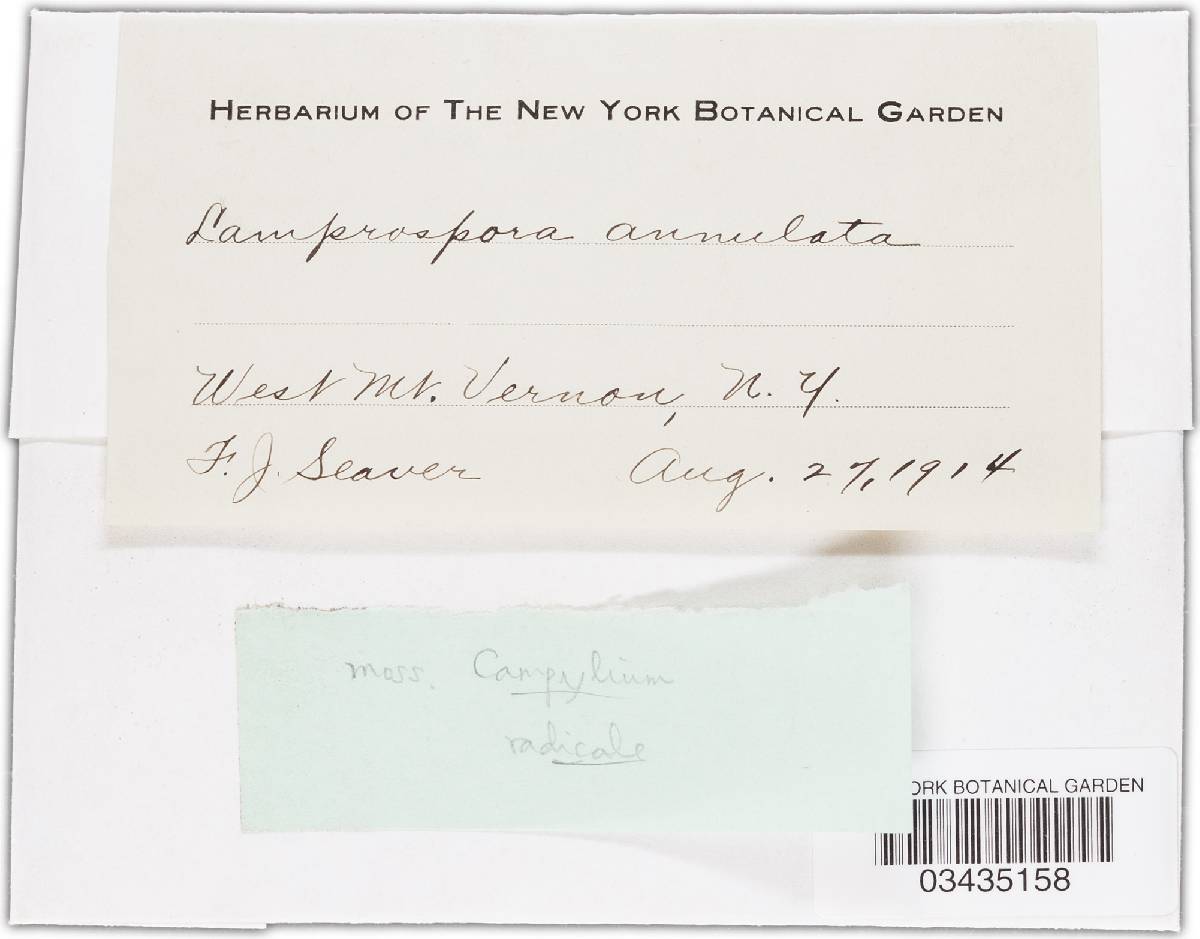 HERBARIUM OF THE NEW YORK BOTANICAL GARDEN
Lamprospora annulata
West Mt. Vernon, N.Y.
F. J. Seaver Aug. 27, 1914
moss. Campylium
radicale
ORK BOTANICAL GARDEN
03435158